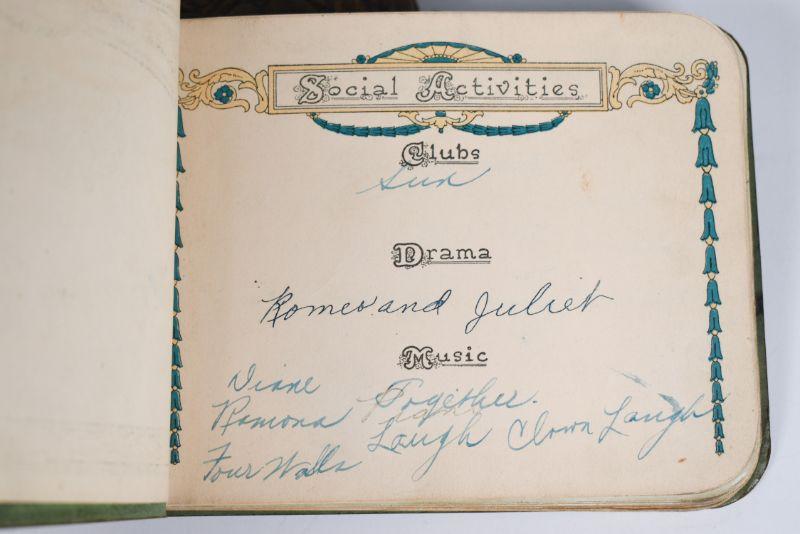 Social Activities
Clubs
Sun
Drama
Romeo and Juliet
Music
Diane Together.
Ramona Laugh Clown Laugh
Four Walls